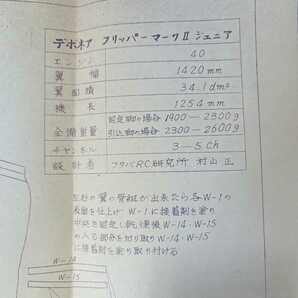 デホネア フリッパーマークⅡジュニア
エンジン 40
翼幅 1420mm
翼面積 34.1dm²
機長 1254mm
全備重量 固定脚の場合 1900—2300g
引込脚の場合 2300—2600g
チャンネル 3—5ch
設計者 フタバRC研究所 村山 正
左右の翼の骨組が出来たら各W-1の
表面を仕上げ W-1に接着剤を塗り
中央を固定し乾燥後W-14・W-15
の入る部分を切り取りW-14・W-15
に接着剤を塗り取り付ける
W-14
W-15